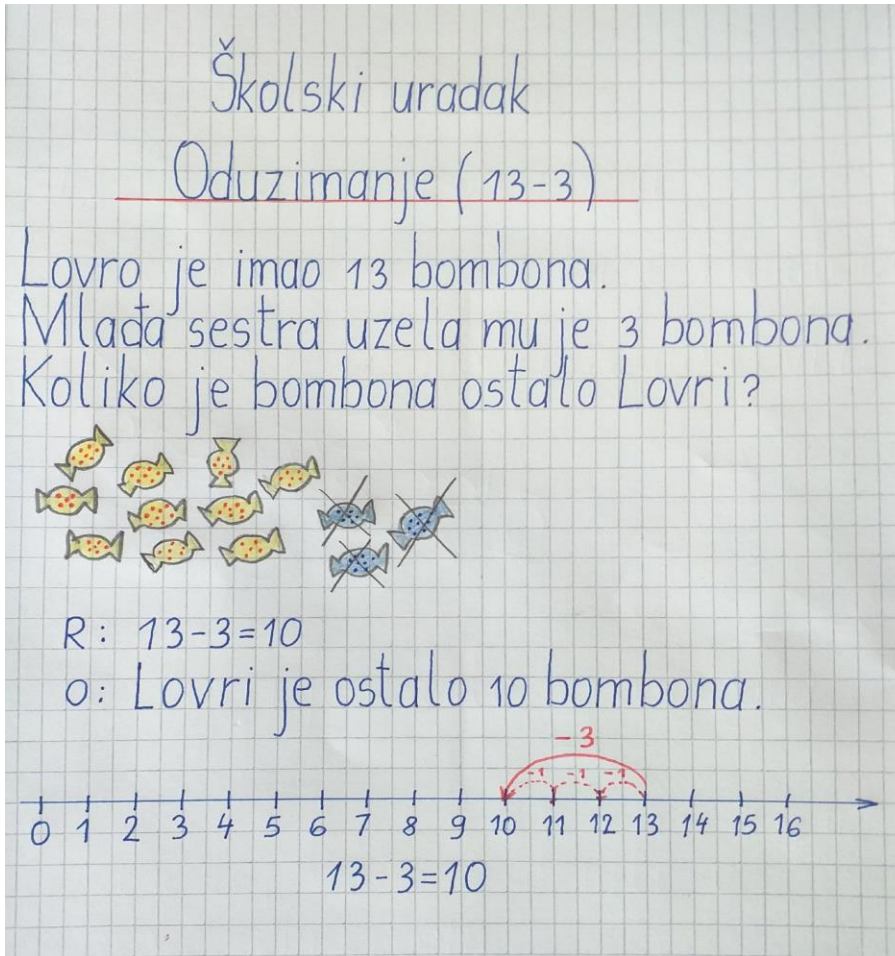 Školski uradak
Oduzimanje (13-3)
Lovro je imao 13 bombona.
Mlađa sestra uzela mu je 3 bombona.
Koliko je bombona ostalo Lovri?
R: 13-3=10
O: Lovri je ostalo 10 bombona.
-3
-1 -1 -1
0 1 2 3 4 5 6 7 8 9 10 11 12 13 14 15 16
13-3=10